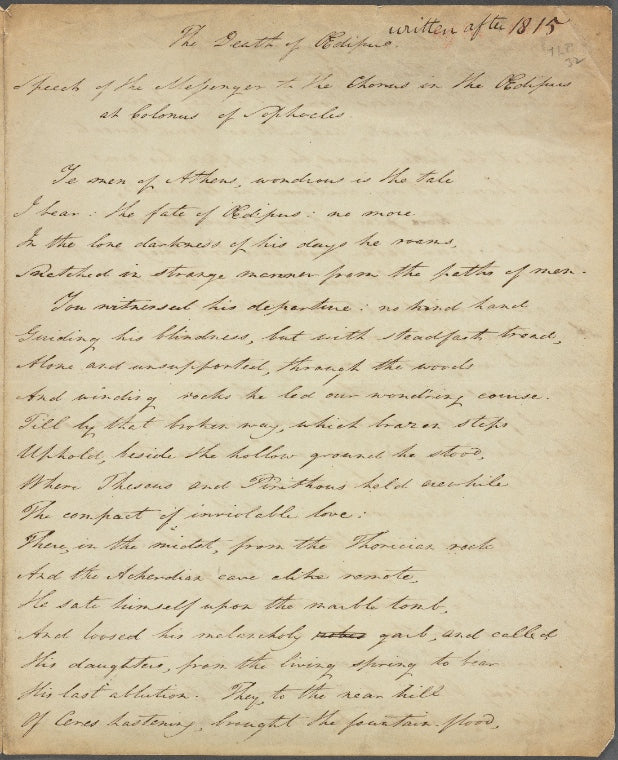 written after 1815
The Death of Œdipus.
TLP
32
Speech of the Messenger to the Chorus in the Œdipus
at Colonus of Sophocles.
Ye men of Athens, wondrous is the tale
I bear: the fate of Œdipus: no more
In the lone darkness of his days he roams,
Snatched in strange manner from the paths of men.
You witnessed his departure: no kind hand
Guiding his blindness, but with steadfast tread,
Alone and unsupported, through the woods
And winding rocks he led our wondring course.
Till by that broken way, which brazen steps
Uphold, beside the hollow ground he stood,
Where Theseus and Pirithous held erewhile
The compact of inviolable love:
There, in the midst, from the Thorician rock
And the Acherdian cave alike remote,
He sate himself upon the marble tomb,
And loosed his melancholy robes garb, and called
His daughters, from the living spring to bear
His last ablution. They, to the near hill
Of Ceres hastening, brought the fountain-flood,